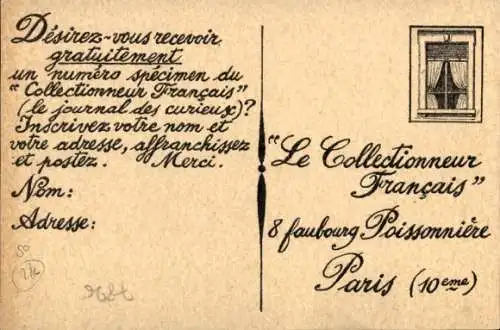 Désirez-vous recevoir
gratuitement
un numéro spécimen du
"Collectionneur Français"
(le journal des curieux)?
Inscrivez votre nom et
votre adresse, affranchissez
et postez. Merci.
Nom:
Adresse:
"Le Collectionneur
Français"
8 faubourg Poissonnière
Paris (10eme)